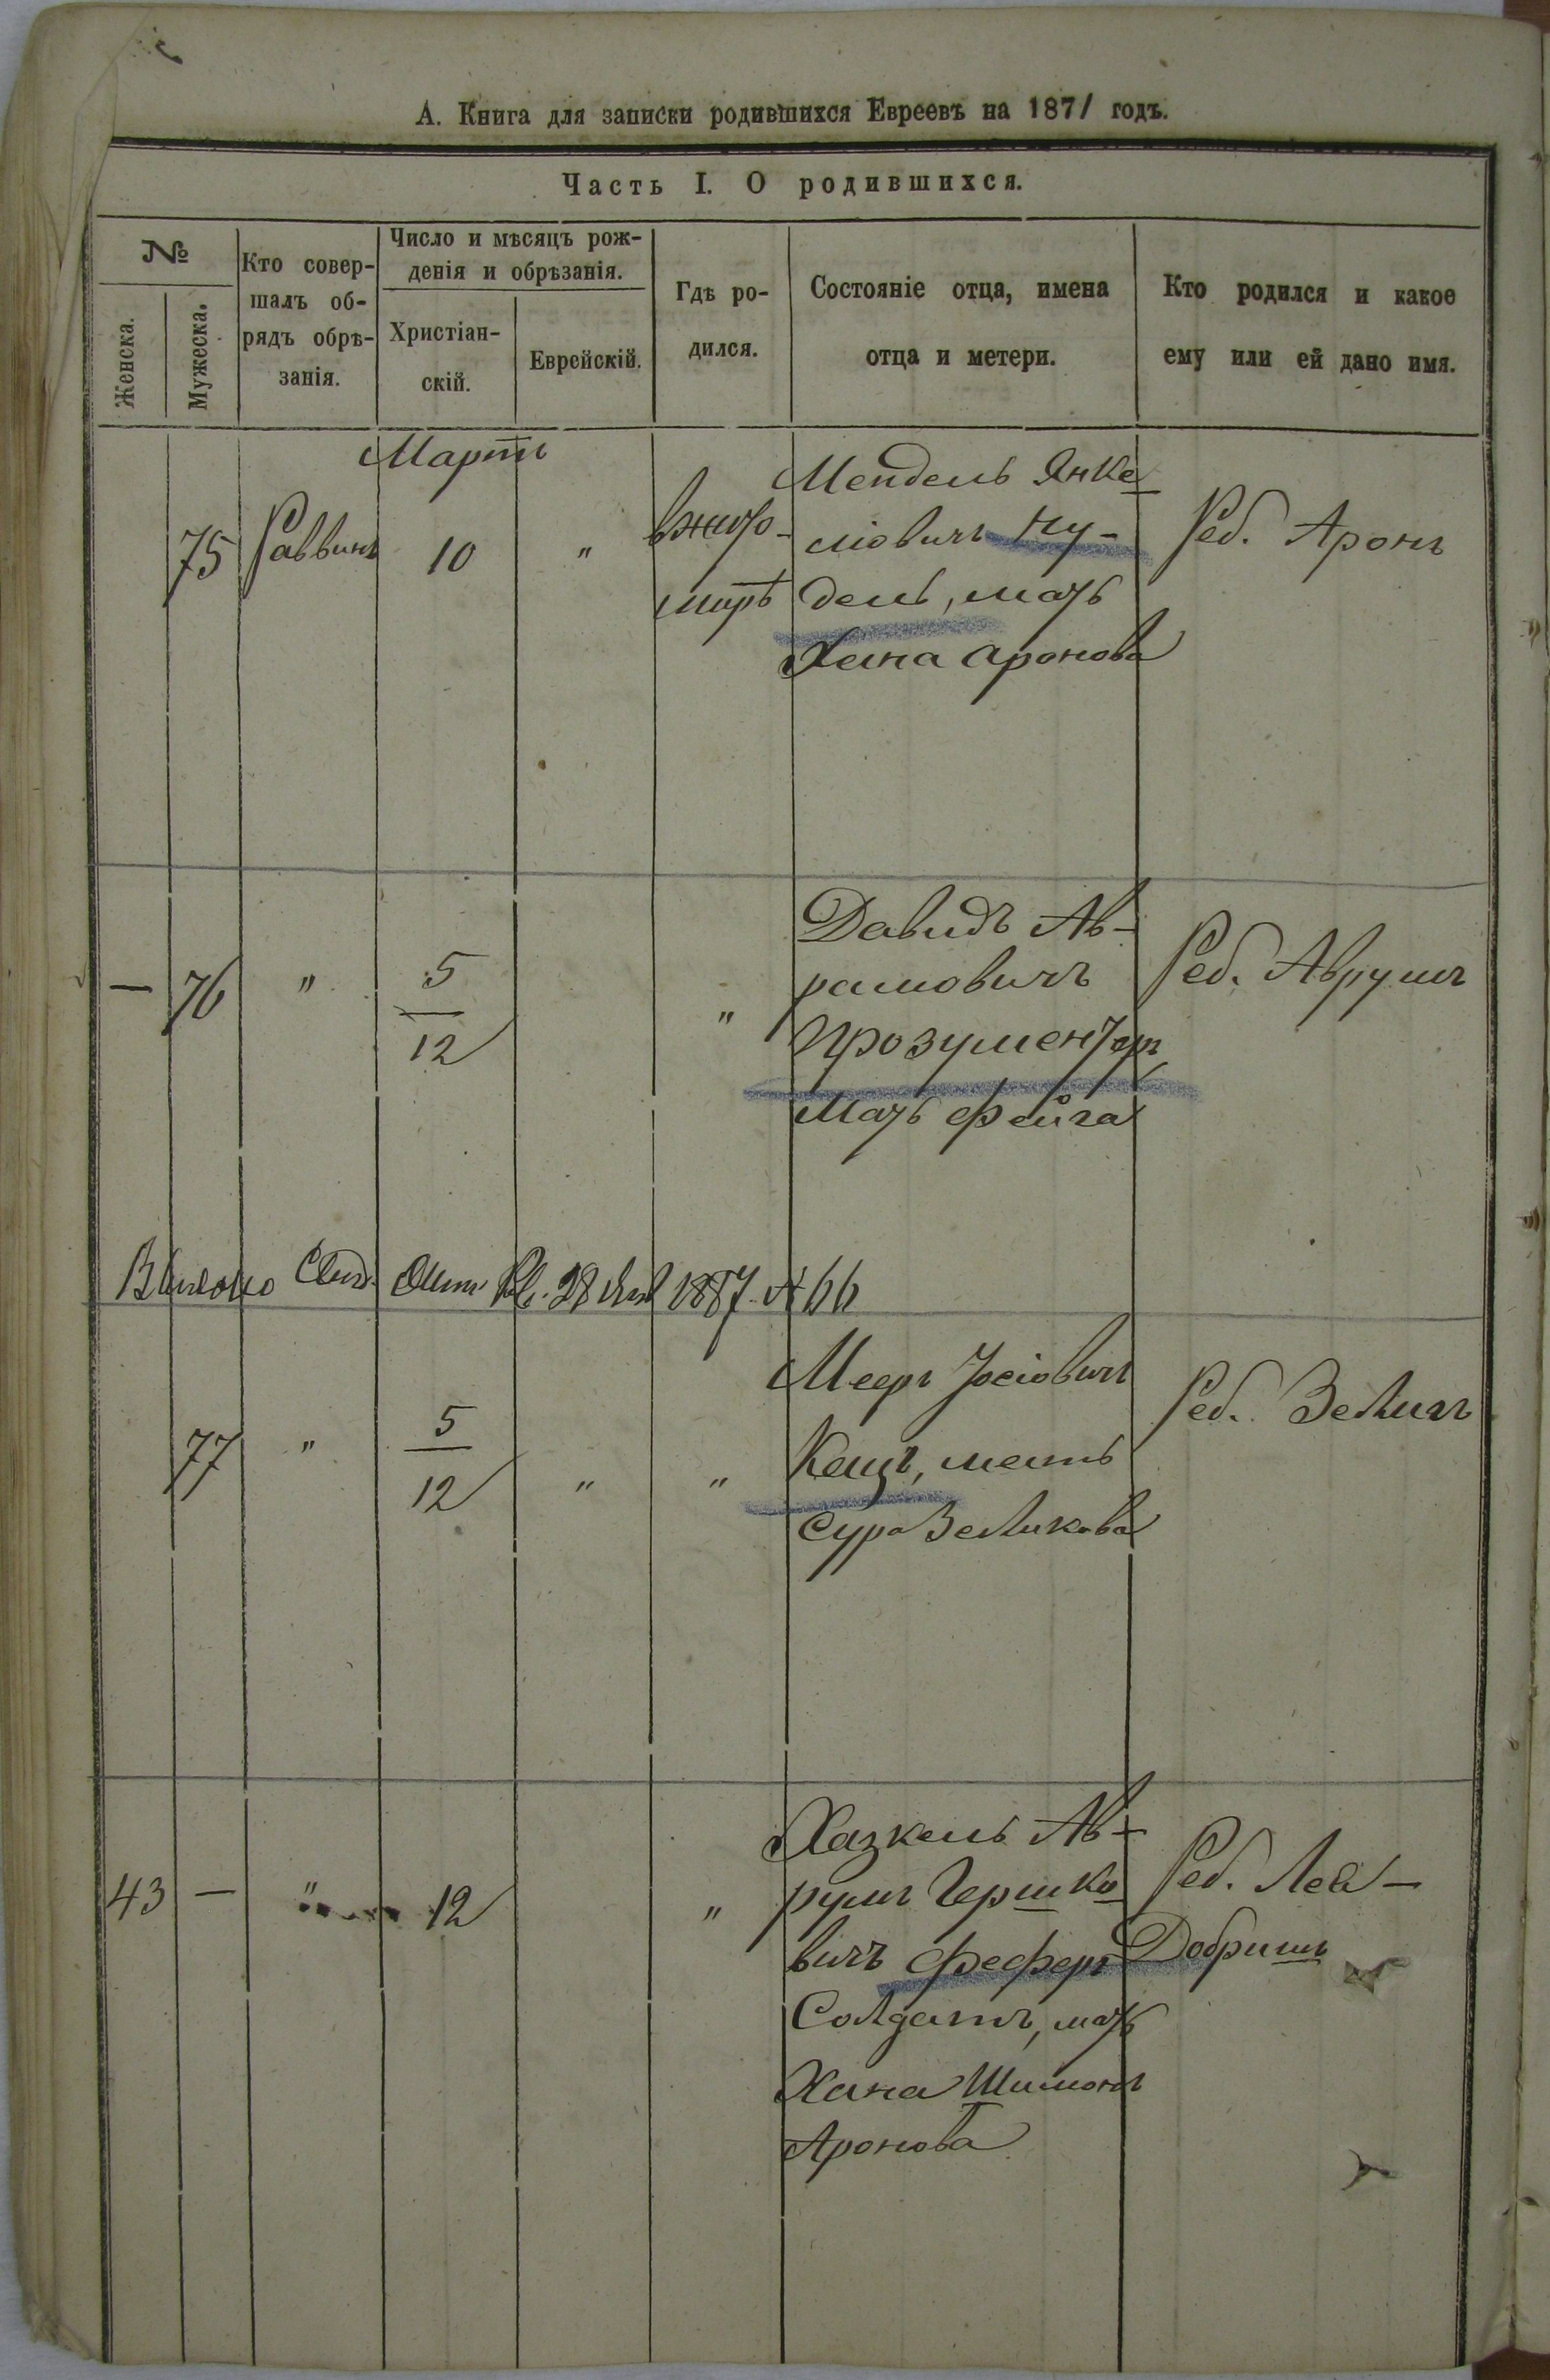 А. Книга для записки родившихся Евреевъ на 1871 годъ.
Часть I. О родившихся.
№
Женска.
Мужеска.
Кто совер-
шалъ об-
рядъ обрѣ-
занія.
Число и мѣсяцъ рож-
денія и обрѣзанія.
Христіан-
скій.
Еврейскій.
Гдѣ ро-
дился.
Состояніе отца, имена
отца и метери.
Кто родился и какое
ему или ей дано имя.
Мартъ
75 Раввинъ 10 "
вжито-
мирѣ
Мендель Янке
ліовичъ Ну-
дель, мать
Хана Аронова
Реб. Аронъ
— 76 " 5
12 "
Давидъ Ав-
рамовичъ
Прозументеръ
Мать Фейга
Реб. Аврумъ
Выдано Свид. 28 1887 № 66
77 " 5
12 " "
Мееръ Іосіовичъ
Кацъ, мать
Сура Зеликова
Реб. Зеликъ
43 — " 12 "
Хазкель Ав-
румъ Гершко
вичъ Феферъ
Солдатъ, мать
Хана Шимонъ
Аронова
Реб. Лея-
Добришъ